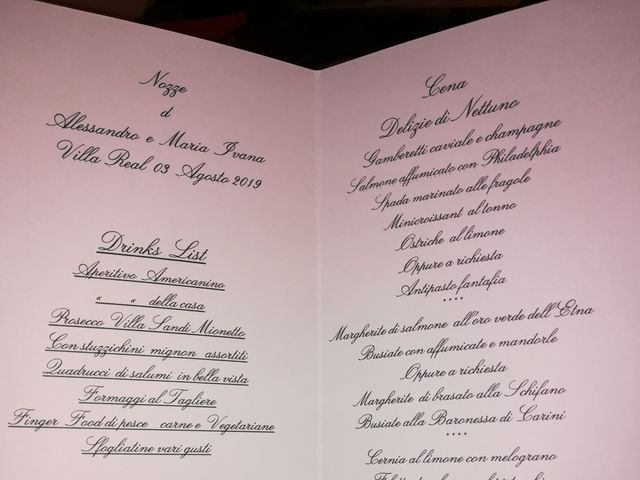 Nozze
d
Alessandro e Maria Ivana
Villa Real 03 Agosto 2019
Drinks List
Aperitivo Americanino
“ “ della casa
Prosecco Villa Sandi Mionetto
Con stuzzichini mignon assortiti
Quadrucci di salumi in bella vista
Formaggi al Tagliere
Finger Food di pesce carne e Vegetariane
Sfogliatine vari gusti
Cena
Delizie di Nettuno
Gamberetti caviale e champagne
Salmone affumicato con Philadelphia
Spada marinato alle fragole
Minicroissant al tonno
Ostriche al limone
Oppure a richiesta
Antipasto fantafia
****
Margherite di salmone all'oro verde dell'Etna
Busiate con affumicate e mandorle
Oppure a richiesta
Margherite di brasato alla Schifano
Busiate alla Baronessa di Carini
****
Cernia al limone con melograno